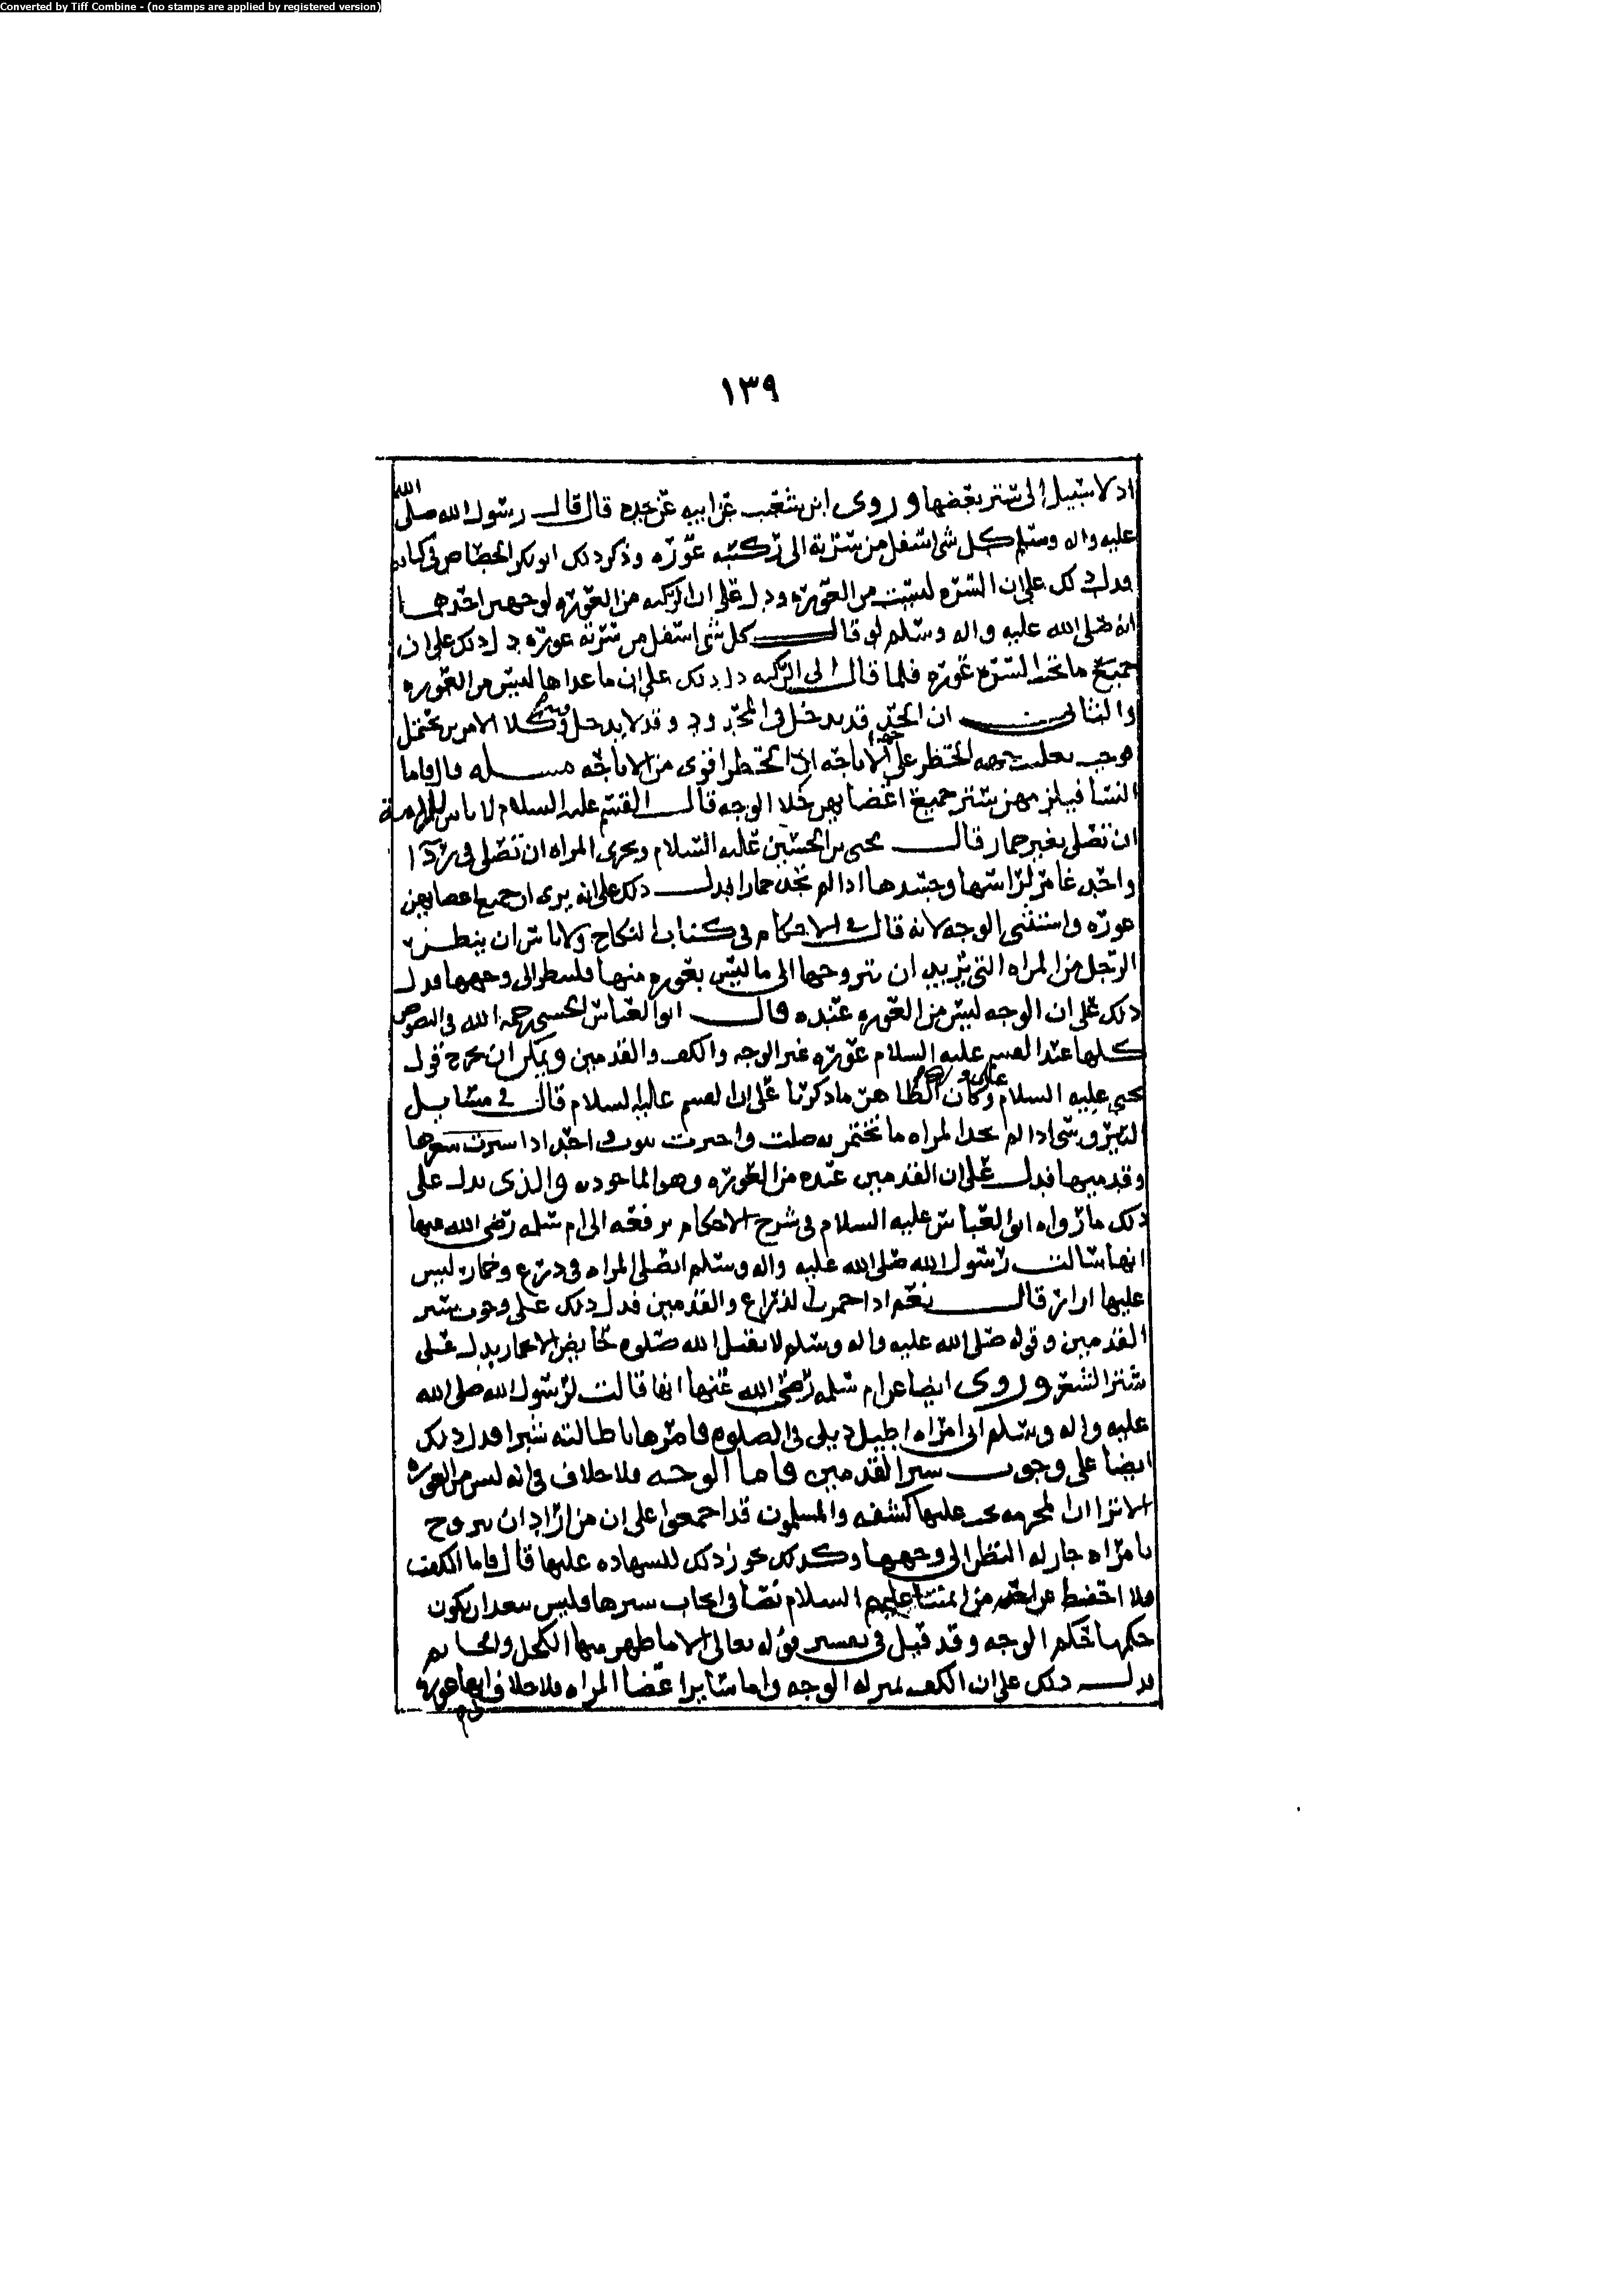 Converted by Tiff Combine - (no stamps are applied by registered version)
١٣٩
اد لا سبيل إلى ستر بعضها وروى ابن شعيب عن ابيه عن جده قال قال رسول الله صلى الله
عليه واله وسلم كل شى اسفل من سرته الى ركبته عورة وذكر ذلك ابو بكر الجصاص فى كتابه
فدل ذلك على ان السرة ليست من العورة ودل على ان الركبه من العورة لوجهين احدهما
انه صلى الله عليه واله وسلم لو قال كل شى اسفل من سرته عورة دل ذلك على ان
جميع ما تحت السرة عورة فلما قال الى الركبه دل ذلك على ان ما عداها ليس من العورة
والثانى ان الحد قد يدخل فى المحدود وقد لا يدخل وكلا الامرين محتمل
فوجب تغليب جهه الحظر على الاباحه اذ الحظر اقوى من الاباحه مسله قال واما
النسا فيلزمهن ستر جميع اعضايهن خلا الوجه قال القسم عليه السلام لا باس للامة
ان تصلى بغير خمار قال يحيى بن الحسين عليه السلام ويجزى المراه ان تصلى فى ردآ
واحد غامر لراسها وجسدها اذا لم تجد خمارا فدل ذلك على انه يرى ان جميع اعضايهن
عورة واستثنى الوجه لانه قال فى الاحكام فى كتاب النكاح ولا باس ان ينظر
الرجل من المراه التى يريد ان يتزوجها الى ما ليس بعورة منها فلينظر الى وجهها فدل
ذلك على ان الوجه ليس من العورة عنده قال ابو العباس الحسنى رحمه الله فى النصوص
كلها عند القسم عليه السلام عورة غير الوجه والكف والقدمين ويمكن ان يخرج قول
يحيى عليه السلام وكان الظاهر ما ذكرنا على ان القسم عليه السلام قال فى مسايل
النيروسى اذا لم تجد المراه ما تختمر به صلت واجزت بثوب واحد اذا سترت شعرها
وقدميها فدل على ان القدمين عنده من العورة وهو الماخوذ به والذى يدل على
ذلك ما رواه ابو العباس عليه السلام فى شرح الاحكام يرفعه الى ام سلمه رضى الله عنها
انها سالت رسول الله صلى الله عليه واله وسلم اتصلى المراه فى درع وخمار ليس
عليها ازار قال نعم اذا خمرت الذراع والقدمين فدل ذلك على وجوب ستر
القدمين وقوله صلى الله عليه واله وسلم لا يقبل الله صلوه حايض الا بخمار يدل على
ستر الشعر وروى ايضا عن ام سلمه رضى الله عنها انها قالت لرسول الله صلى الله
عليه واله وسلم انى امراه اطيل ذيلى فى الصلوه فامرها باطالته شبرا فدل ذلك
ايضا على وجوب ستر القدمين فاما الوجه فلا خلاف فى انه ليس من العورة
الا ترا ان المحرمه يجب عليها كشفه والمسلمون قد اجمعوا على ان من اراد ان يتزوج
بامراه جاز له النظر الى وجهها وكذلك يجوز ذلك للشهاده عليها قال واما الكف
فلا احفظ عن احد من ايمتنا عليهم السلام نصا فى ايجاب سترها وليس يبعد ان يكون
حكمها حكم الوجه وقد قيل فى تفسير قوله تعالى الا ما ظهر منها الكحل والخاتم
فدل ذلك على ان الكف بمنزله الوجه واما ساير اعضا المراه فلا خلاف انها عورة